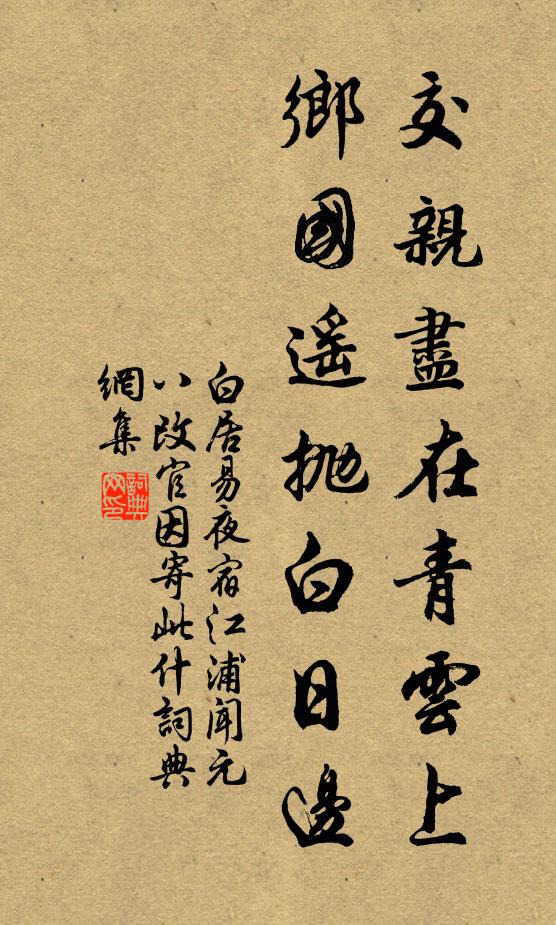 交親盡在青雲上
鄉國遥抛白日邊
白居易夜宿江浦聞元
八改官因寄此什詞典
網集
詞典
网印